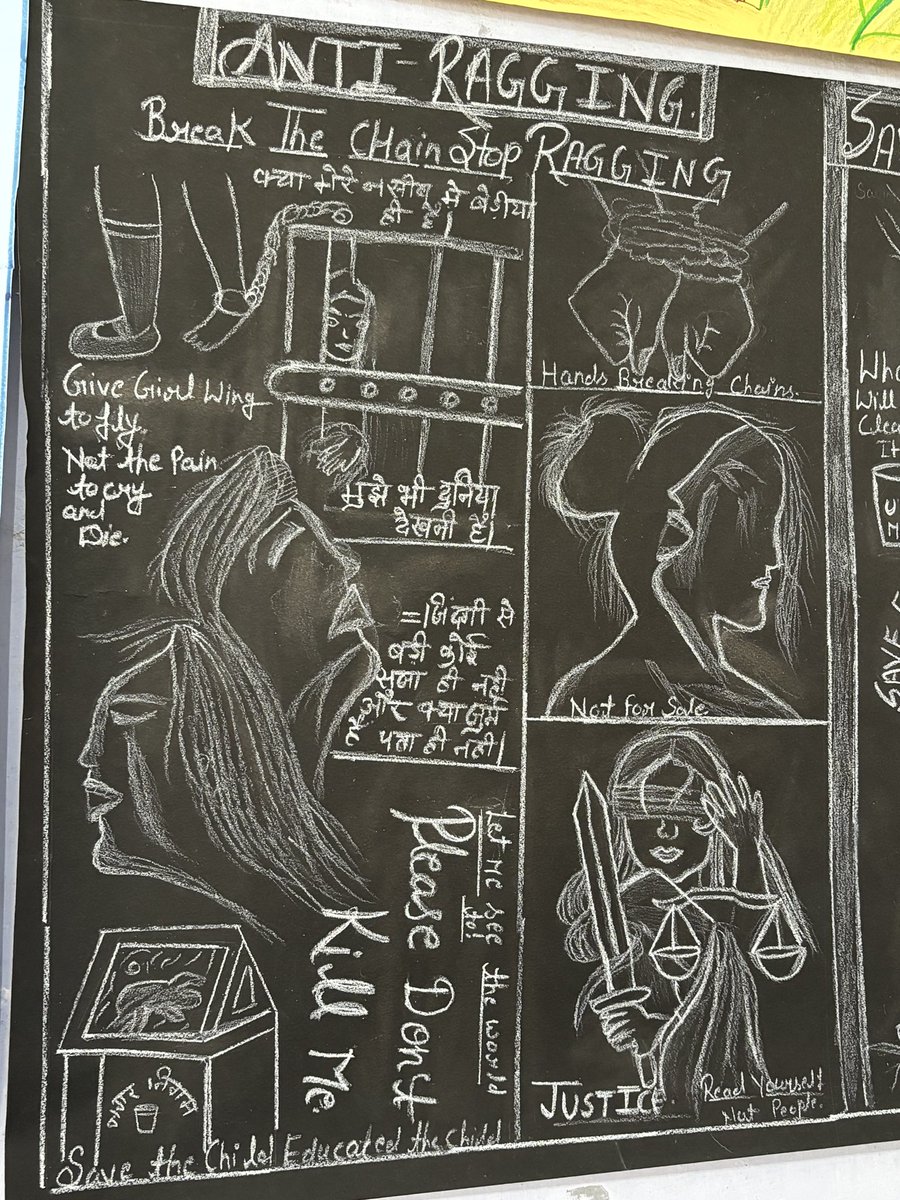 ANTI-RAGGING.
Break The CHain Stop RAGGING
क्या मेरे नसीब मे बेड़ीया
ही है।
Give Girl Wing
to fly.
Not the Pain
to cry
and
Die.
मुझे भी दुनिया
देखनी है।
Hands Breaking Chains.
Not for Sale
=।जिंदगी से
बड़ी कोई
सजा ही नही
और क्या जुर्म है
पता ही नही।
Let me see the world
to!
Please Don't
Kill Me.
नगर निगम
Save the Child Educated the child
JUSTICE.
Read Yourself
Not People.
SA
Wh
Will
Clea
It
U
M
SAVE